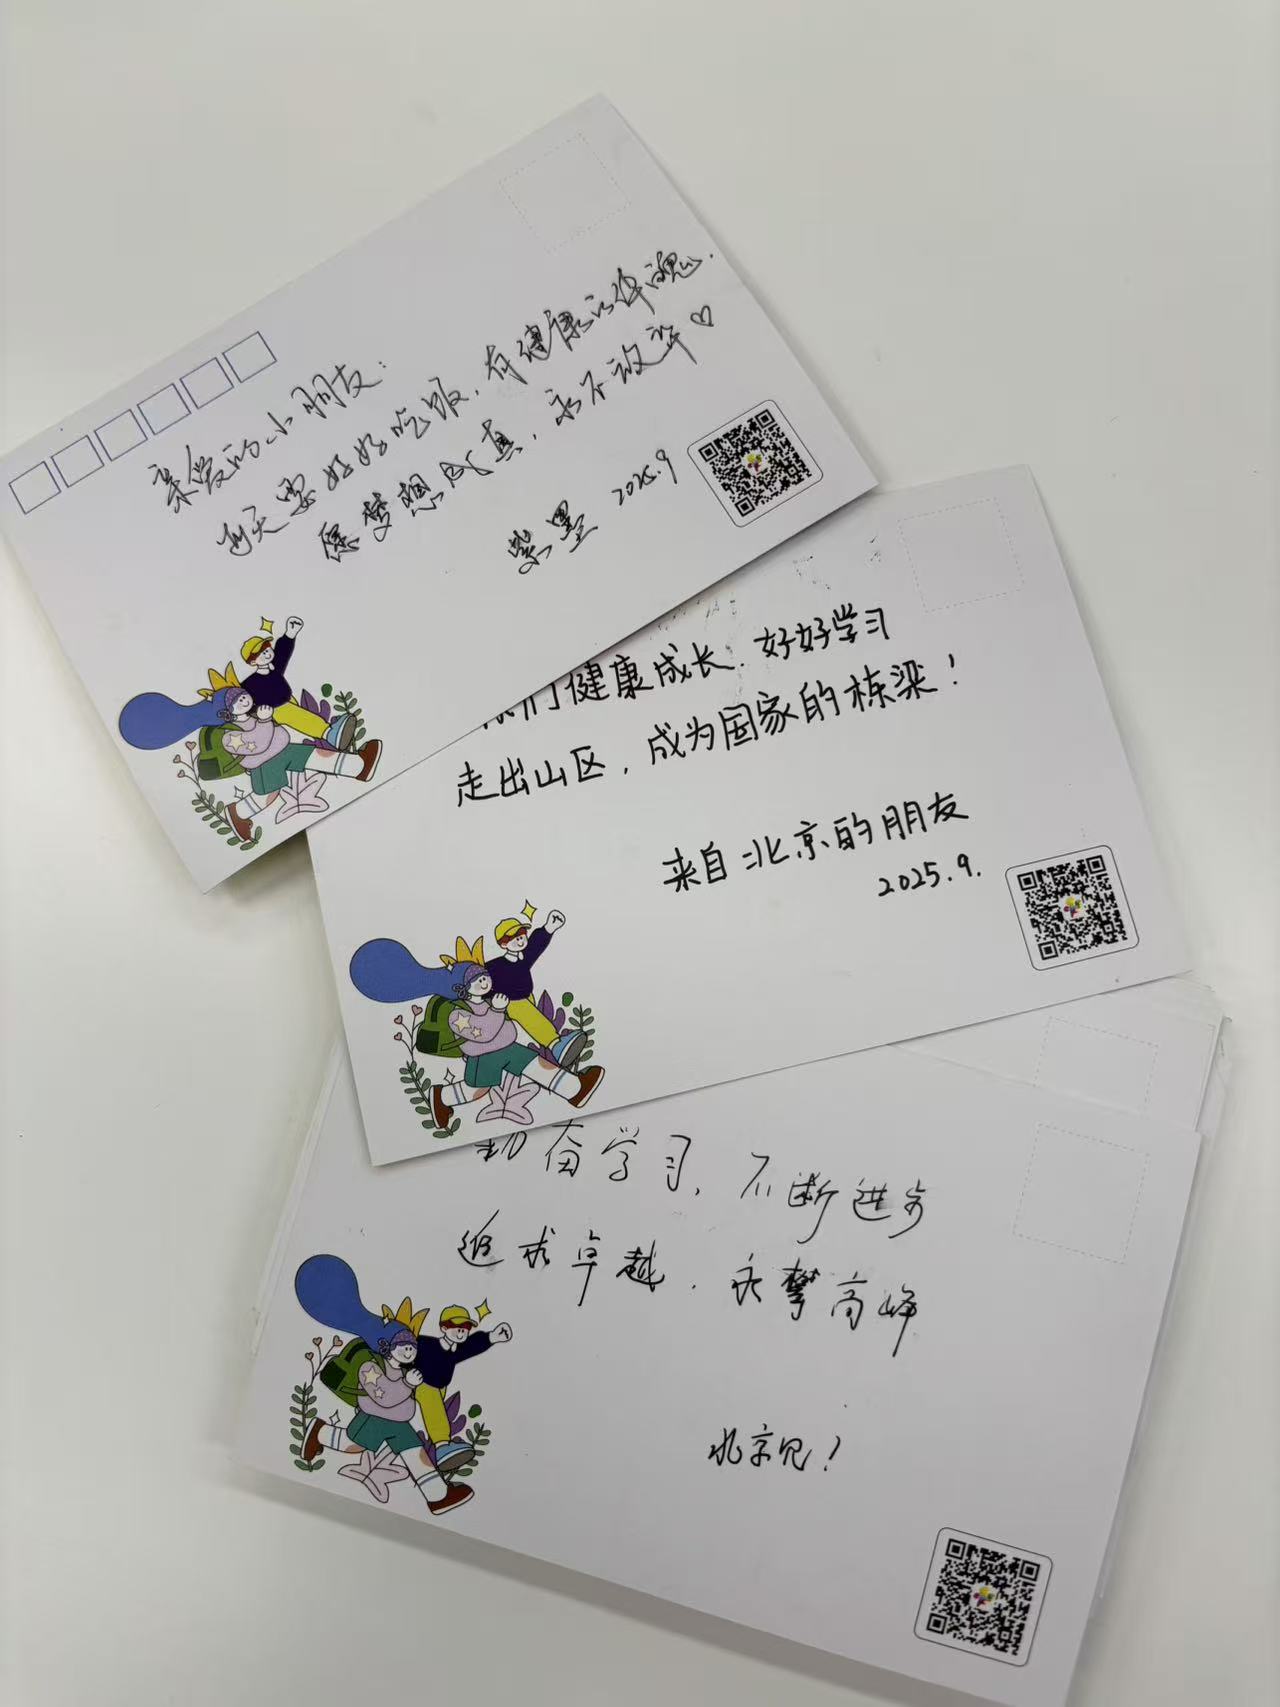 亲爱的小朋友：
每天要好好吃饭，有健康的体魄.
愿梦想成真，永不放弃♡
紫墨 2025.9
你们健康成长.好好学习
走出山区，成为国家的栋梁！
来自北京的朋友
2025.9.
勤奋学习，不断进步
追求卓越．永攀高峰
北京见！